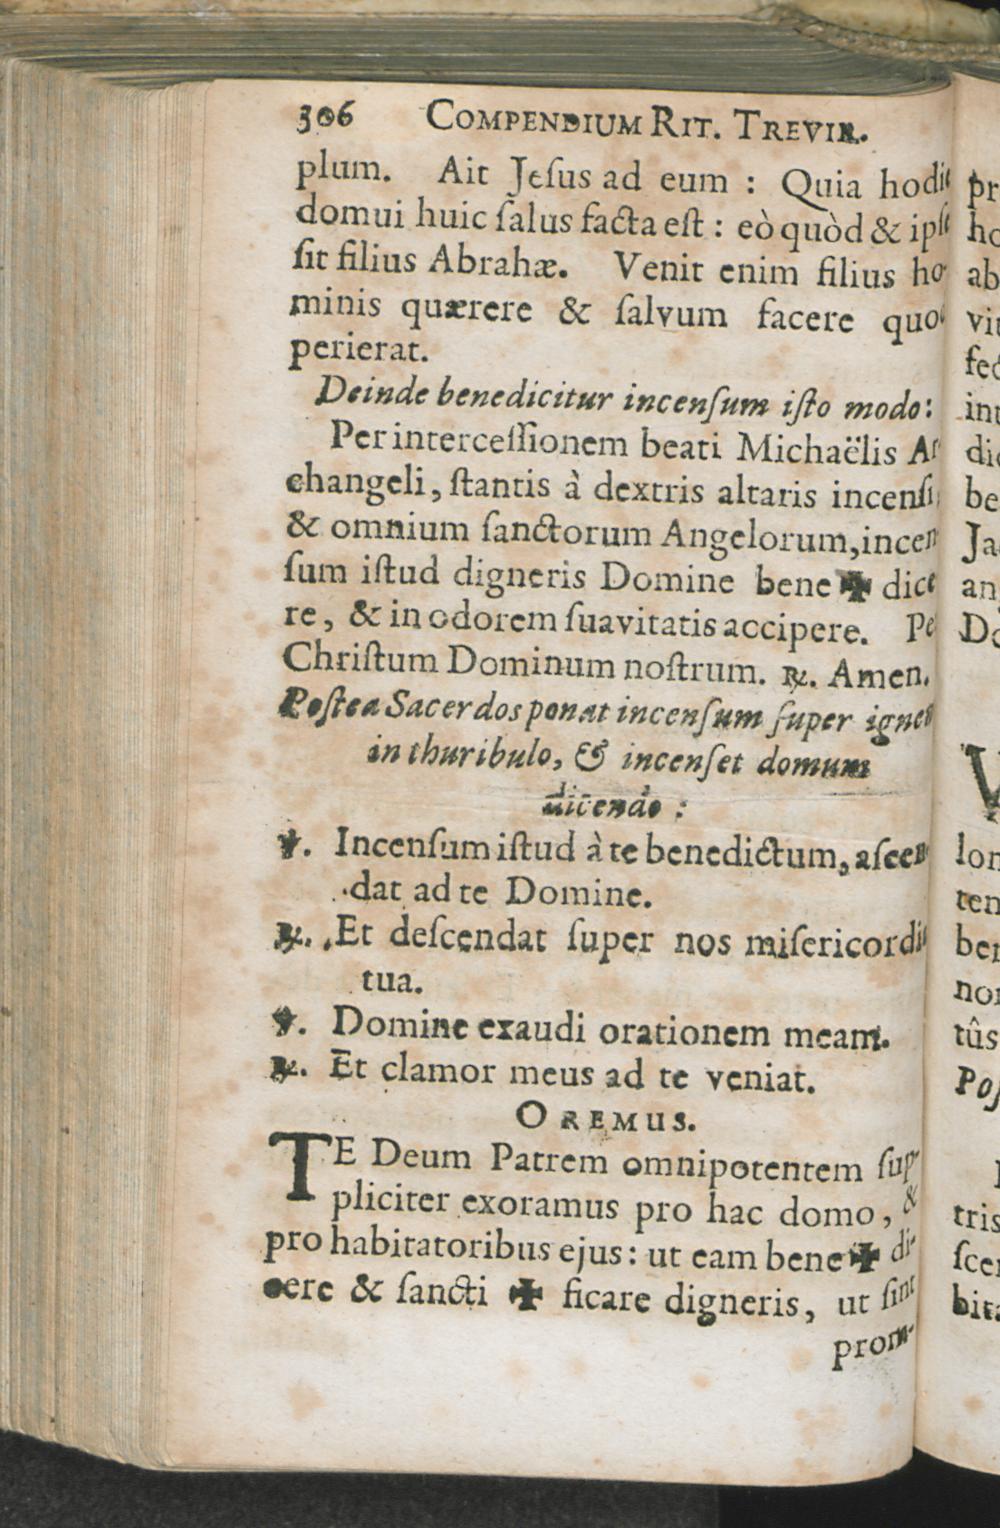 306 COMPENDIUM RIT. TREVIR.
plum. Ait Jeſus ad eum : Quia hodie
domui huic ſalus facta eſt : eò quòd & ipſe
ſit filius Abrahæ. Venit enim filius ho-
minis quærere & ſalvum facere quod
perierat.
Deinde benedicitur incenſum iſto modo:
Per interceſſionem beati Michaëlis Ar
changeli, ſtantis à dextris altaris incenſi,
& omnium ſanctorum Angelorum, incen
ſum iſtud digneris Domine bene ✠ dice
re, & in odorem ſuavitatis accipere. Pe
Chriſtum Dominum noſtrum. ℟. Amen.
Poſtea Sacerdos ponat incenſum ſuper ignem
in thuribulo, & incenſet domum
dicendo :
℣. Incenſum iſtud à te benedictum, aſcen
dat ad te Domine.
℟. Et deſcendat ſuper nos miſericordia
tua.
℣. Domine exaudi orationem meam.
℟. Et clamor meus ad te veniat.
OREMUS.
TE Deum Patrem omnipotentem ſup-
pliciter exoramus pro hac domo, &
pro habitatoribus ejus : ut eam bene ✠ di-
cere & ſancti ✠ ficare digneris, ut ſint
prom-
pr
ho
ab
vit
fec
int
dic
be
Ja
an
Do
V
lon
ten
ber
non
tûs
Poſ
tris
ſce
bita